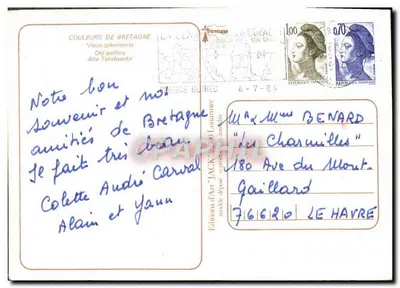 COULEURS DE BRETAGNE
Vieux gréements
Old gaffers
Alte Takelwerke
Bretagne
4-7-84
1,00
0,70
Notre bon
souvenir et nos
amitiés de Bretagne
Il fait très beau
Colette André Carval
Alain et Yann
Editions d'Art "JACK"
Mr & Mme BENARD
"Les Charmilles"
180 Ave du Mont-
Gaillard
76620 LE HAVRE